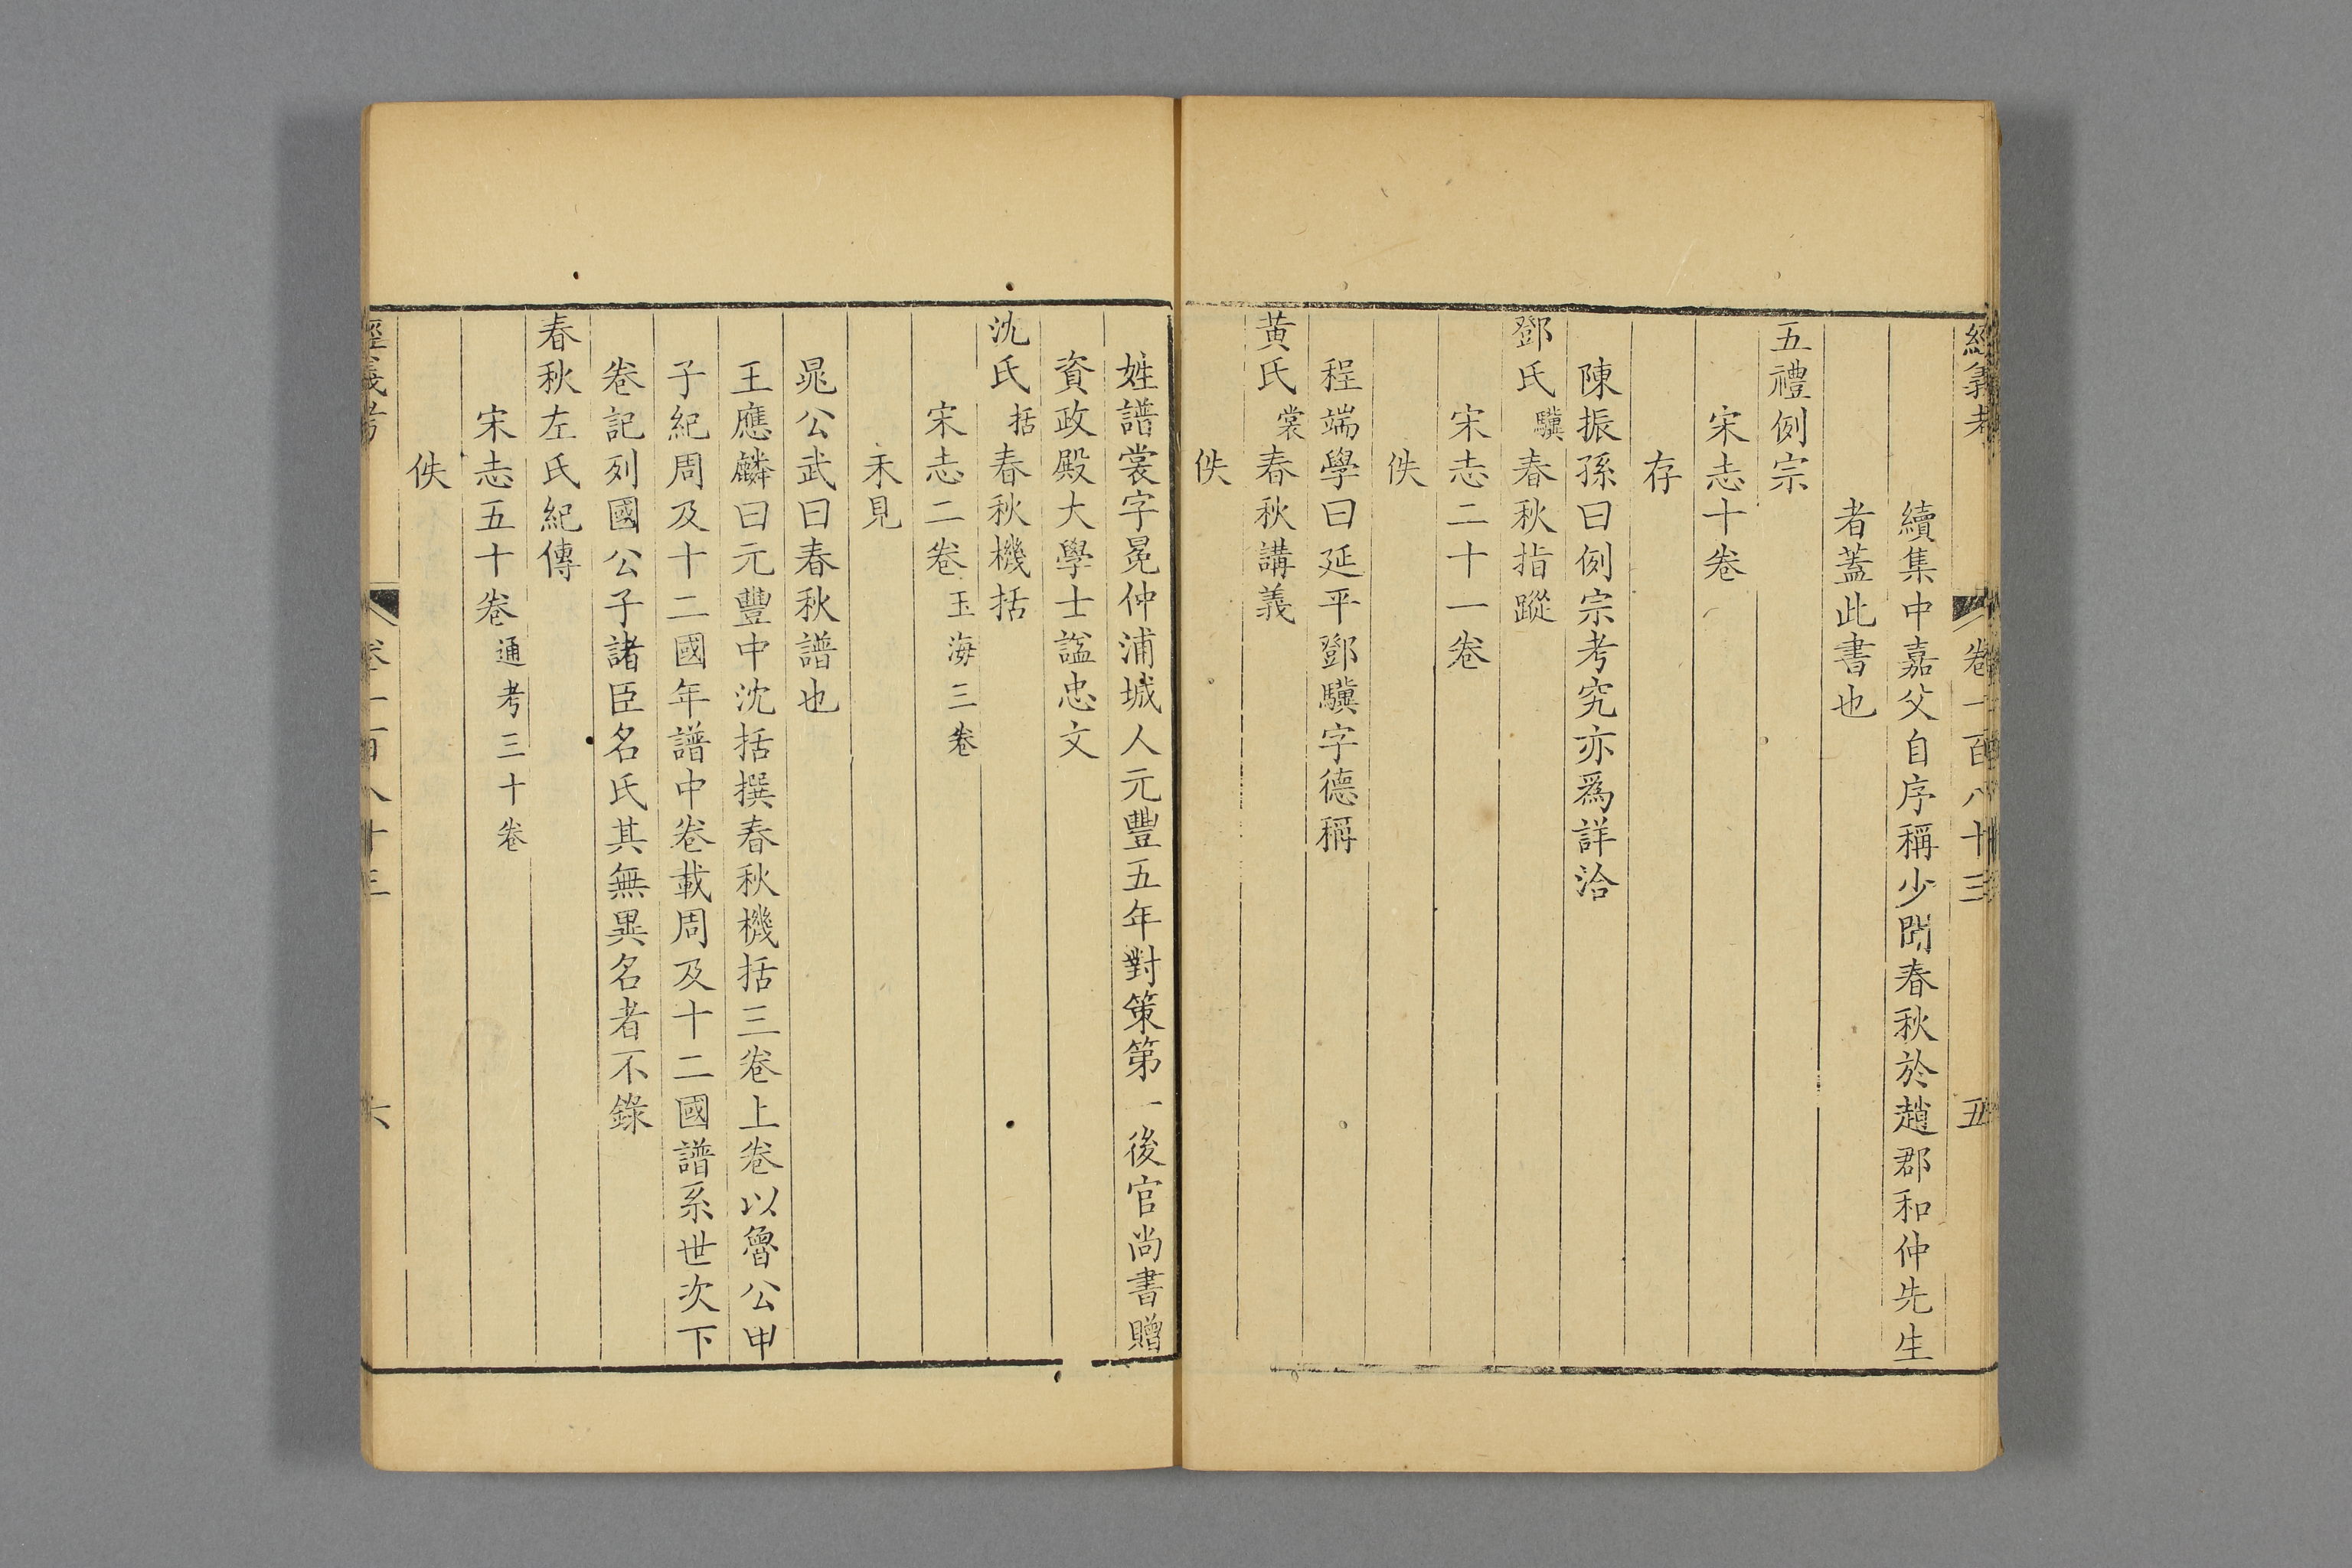 經義考 卷一百八十三 五
續集中嘉父自序稱少聞春秋於趙郡和仲先生
者蓋此書也
五禮例宗
宋志十卷
存
陳振孫曰例宗考究亦爲詳洽
鄧氏驥春秋指蹤
宋志二十一卷
佚
程端學曰延平鄧驥字德稱
黃氏裳春秋講義
佚
姓譜裳字冕仲浦城人元豐五年對策第一後官尚書贈
資政殿大學士諡忠文
沈氏括春秋機括
宋志二卷玉海三卷
未見
晁公武曰春秋譜也
王應麟曰元豐中沈括撰春秋機括三卷上卷以魯公甲
子紀周及十二國年譜中卷載周及十二國譜系世次下
卷記列國公子諸臣名氏其無異名者不錄
春秋左氏紀傳
宋志五十卷通考三十卷
佚
經義考 卷一百八十三 六